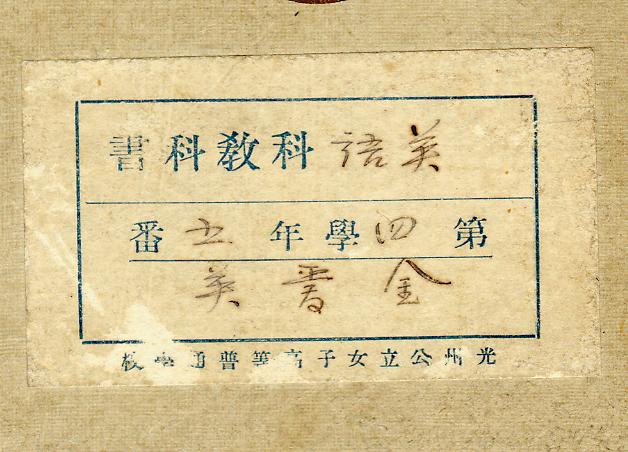 英語科敎科書
第四學年五番
金 英
光州公立女子高等普通學校